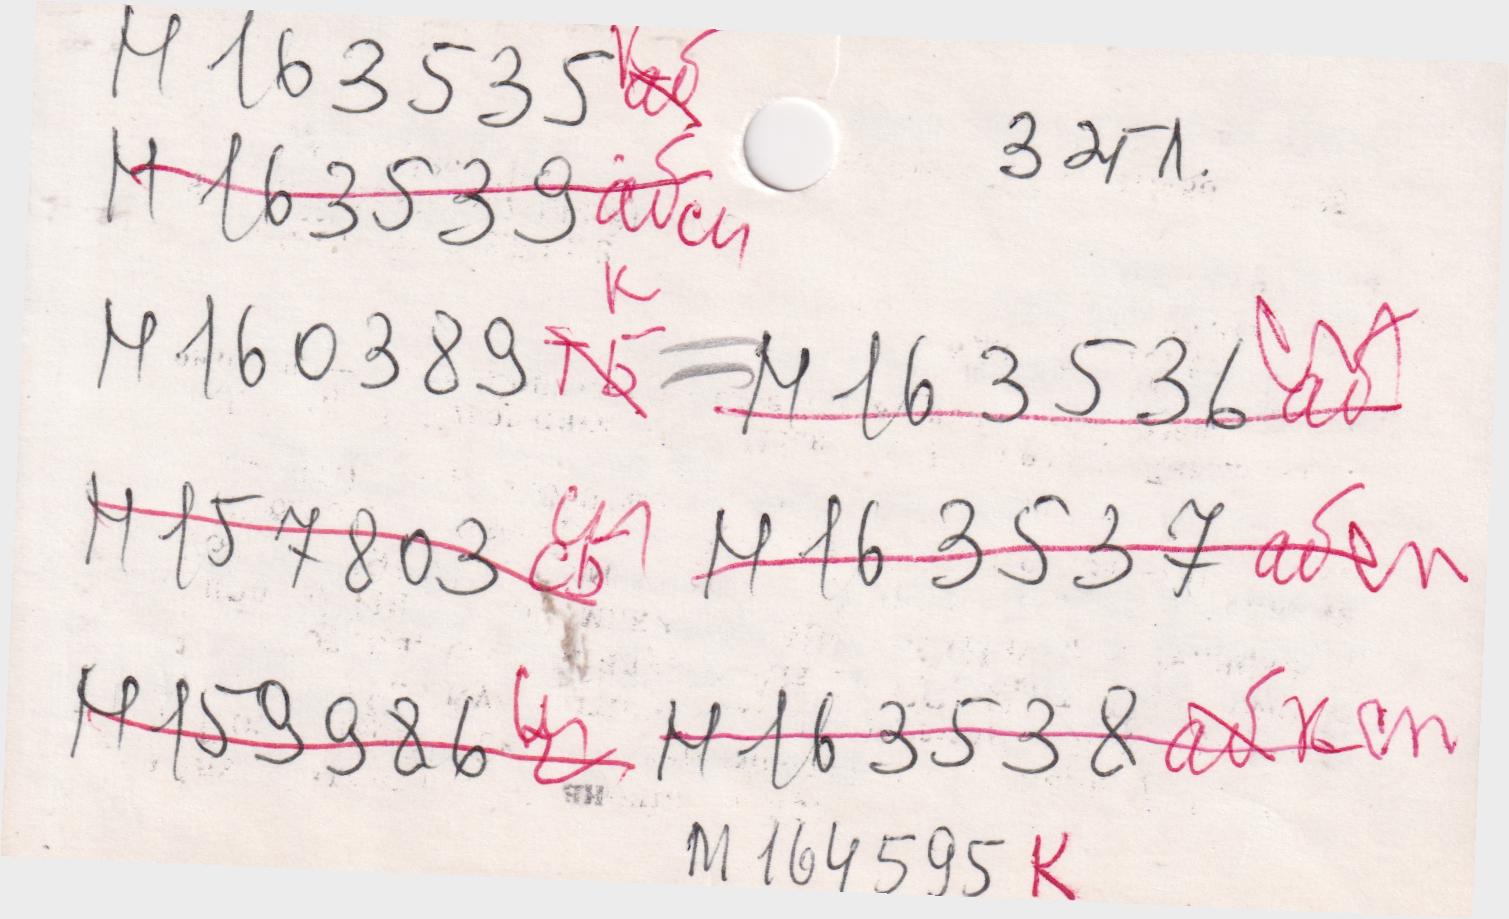 М 163535 каб
М 163539 абсп
3 эгл.
К
М 160389 = М 163536 аб
М 157803 М 163537 абсп
М 159986 М 163538 абк сп
М 164595 К